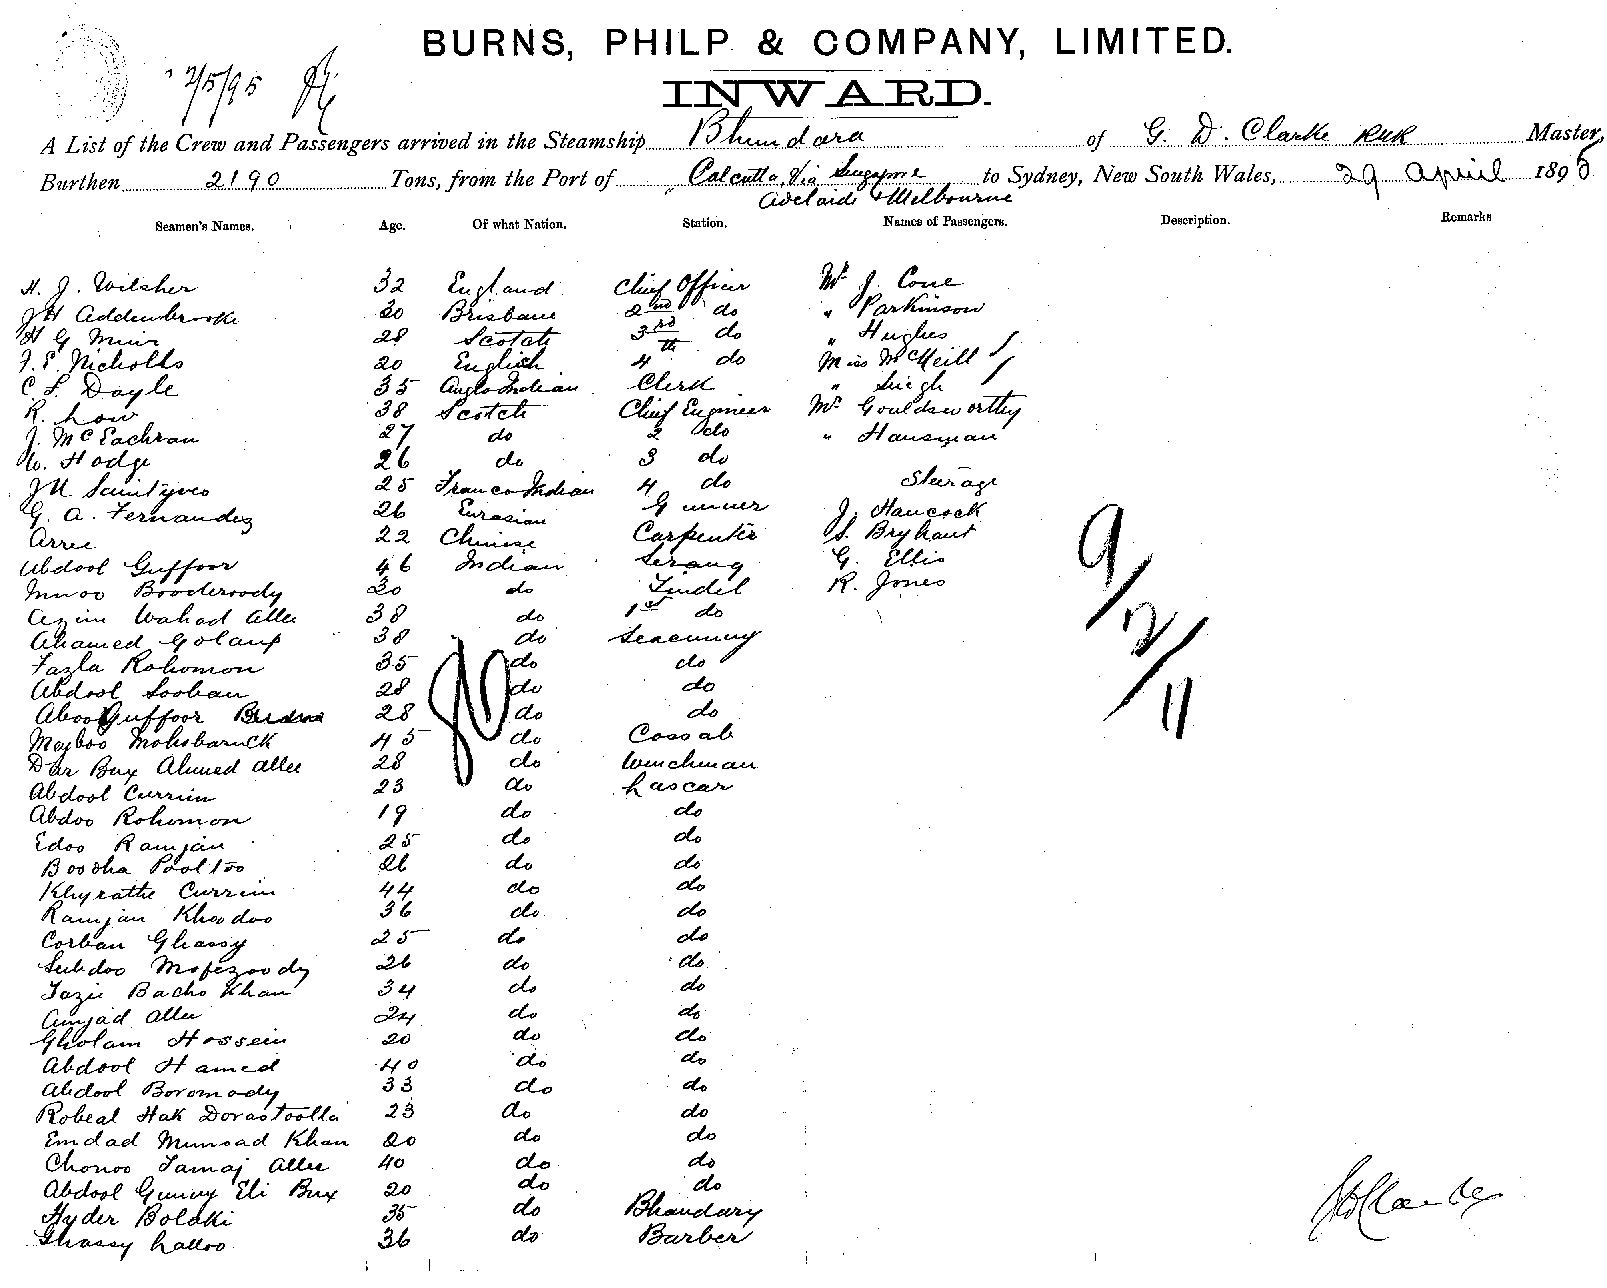 BURNS, PHILP & COMPANY, LIMITED.
2/5/95
INWARD.
A List of the Crew and Passengers arrived in the Steamship Bhundara of G. D. Clarke RNR Master,
Burthen 2190 Tons, from the Port of Calcutta, Via Singapore to Sydney, New South Wales, 29 April 1895
Adelaide & Melbourne
Seamen's Names. Age. Of what Nation. Station. Names of Passengers. Description. Remarks
H. J. Wilsher 32 England Chief Officer Mr J. Cone
J H Addenbrooke 20 Brisbane 2nd do " Parkinson
H G Muir 28 Scotch 3rd do " Hughes
F. E. Nicholls 20 English 4th do Miss McNeill
C L Doyle 35 Anglo Indian Clerk " Singh
R. Low 38 Scotch Chief Engineer Mr Gouldsworthy
J. McEachran 27 do 2 do " Hausman
W. Hodge 26 do 3 do
J M Saintyves 25 Franco Indian 4 do Steerage
G. A. Fernandez 26 Eurasian Gunner J. Hancock
Arree 22 Chinese Carpenter S. Bryhant
Abdool Guffoor 46 Indian Serang G. Ellis
Innoo Booderoody 30 do Tindel R. Jones
Azim Wahad Allee 38 do 1st do
Ahamed Golauf 38 do Seacunny
Fazla Rohomon 35 do do
Abdool Sooban 28 do do
Aboo Guffoor 28 do do
Majboo Mohsbaruck 45 do Cossab
Dar Bux Ahmed Allee 28 do Winchman
Abdool Currim 23 do Lascar
Abdoo Rohomon 19 do do
Edoo Ramjan 25 do do
Boodha Pooltoo 26 do do
Khyrathe Currim 44 do do
Ramjan Khodoo 36 do do
Corban Ghassy 25 do do
Subdoo Mofezoody 26 do do
Fazie Bacho Khan 34 do do
Amjad Allee 24 do do
Gholam Hossein 20 do do
Abdool Hamed 40 do do
Abdool Boromody 33 do do
Robeal Hak Dorastoolla 23 do do
Emdad Munsad Khan 20 do do
Chonoo Tamaj Allee 40 do do
Abdool Gunny Eli Bux 20 do do
Hyder Bolaki 35 do Bhandary
Ghassy Lalloo 36 do Barber
80
9/2/11